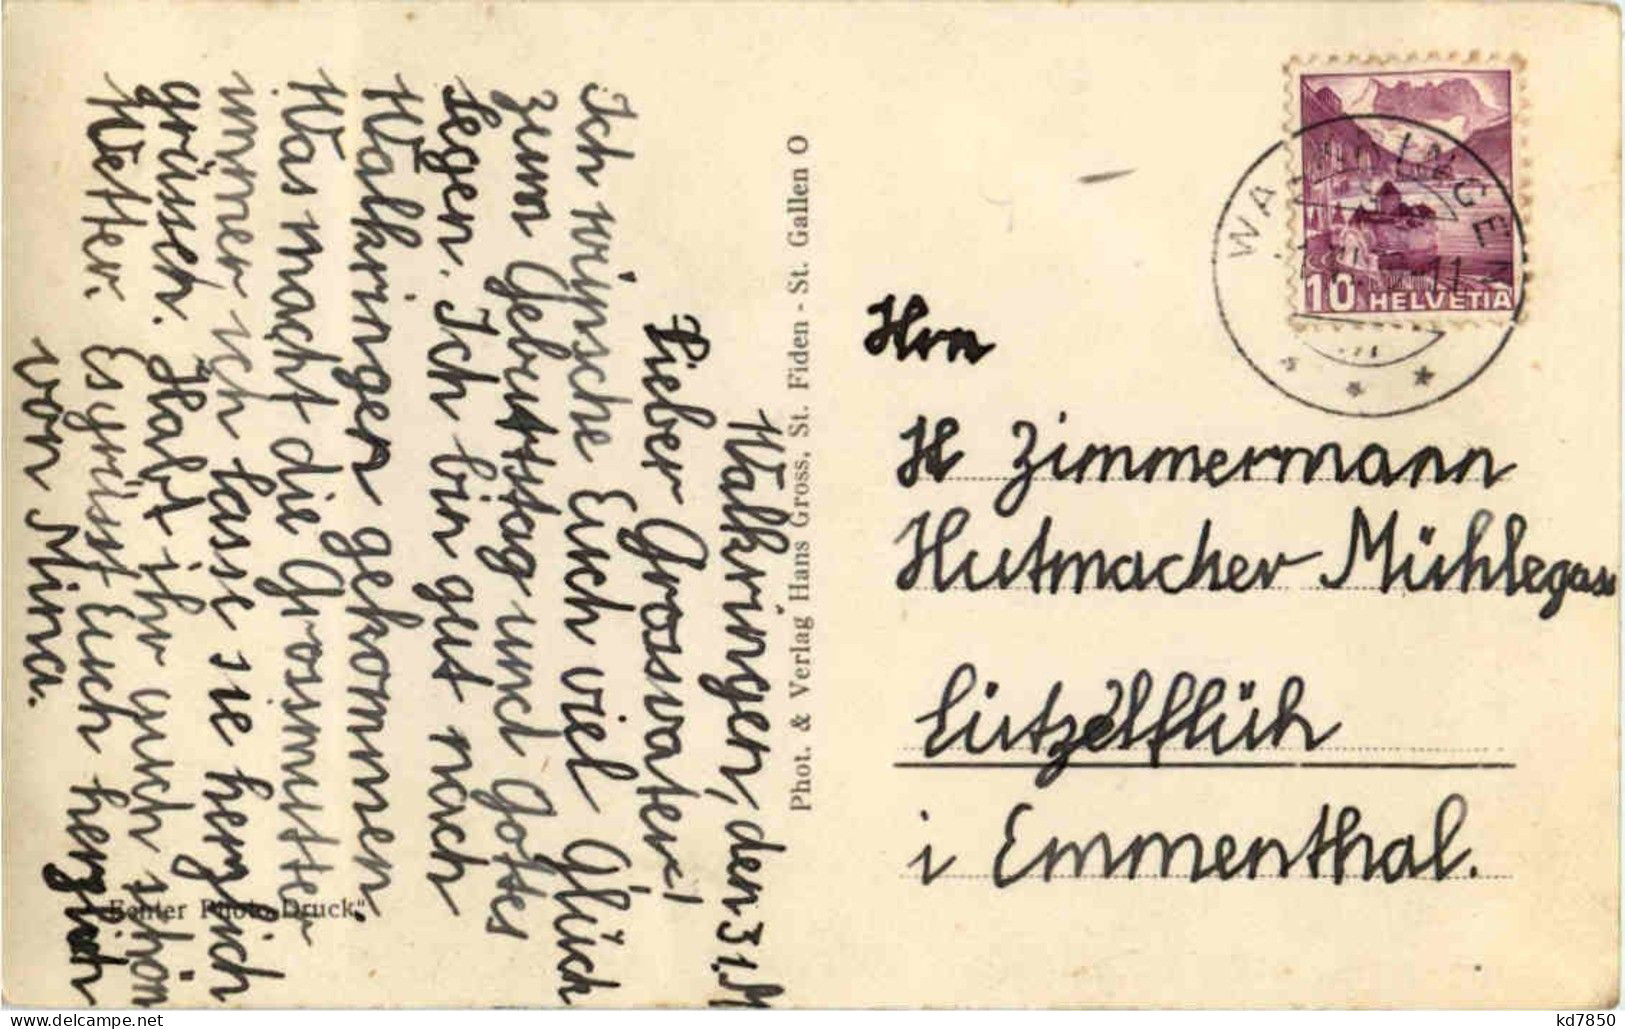 Walkringen, den 31. M
Lieber Grossvater!
Ich wünsche Euch viel Glück
zum Geburtstag und Gottes
Segen. Ich bin gut nach
Walkringen gekommen.
Was macht die Grosmutter
immer ich lasse sie herzlich
grüssen. Habt ihr auch schön
Wetter. Es grüsst Euch herzlich
von Mina.
Phot. & Verlag Hans Gross, St. Fiden - St. Gallen O
„Echter Photo-Druck"
HELVETIA
10
Hrn
H Zimmermann
Hutmacher Mühlegass
Lützelflüh
i Emmenthal.
kd7850